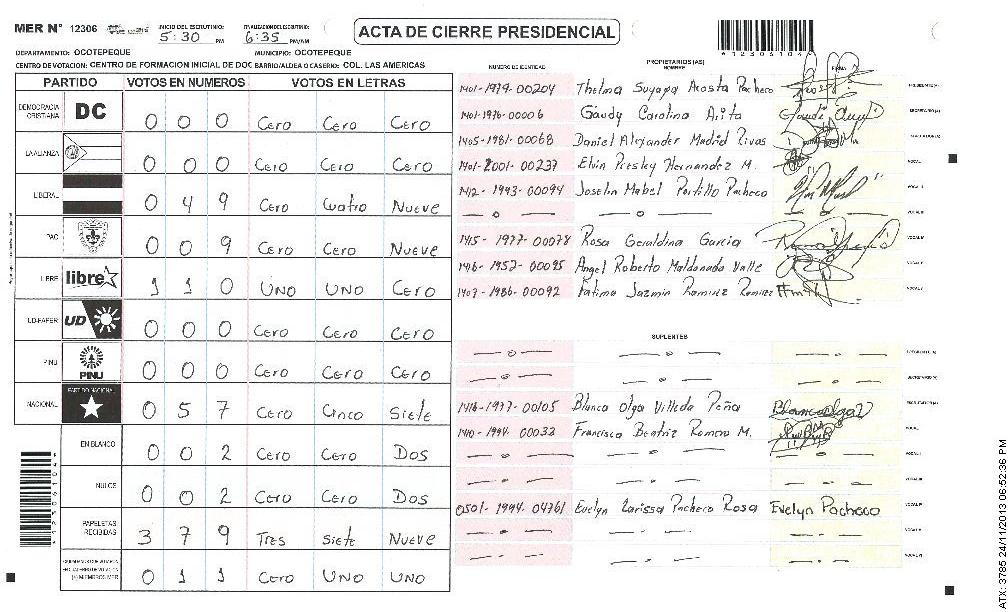 MER N° 12306 INICIO DEL ESCRUTINIO: 5:30 PM FINALIZACION DEL ESCRUTINIO: 6:35 PM/AM
ACTA DE CIERRE PRESIDENCIAL
4123061041
DEPARTAMENTO: OCOTEPEQUE MUNICIPIO: OCOTEPEQUE
CENTRO DE VOTACION: CENTRO DE FORMACION INICIAL DE DOC BARRIO/ALDEA O CASERIO: COL. LAS AMERICAS
PARTIDO VOTOS EN NUMEROS VOTOS EN LETRAS
DEMOCRACIA CRISTIANA DC 0 0 0 Cero Cero Cero
LA ALIANZA 0 0 0 Cero Cero Cero
LIBERAL 0 4 9 Cero Cuatro Nueve
PAC 0 0 9 Cero Cero Nueve
LIBRE libre 1 1 0 UNO UNO Cero
UD-FAPER UD 0 0 0 Cero Cero Cero
PINU PINU 0 0 0 Cero Cero Cero
NACIONAL PARTIDO NACIONAL 0 5 7 Cero Cinco Siete
EN BLANCO 0 0 2 Cero Cero Dos
NULOS 0 0 2 Cero Cero Dos
PAPELETAS RECIBIDAS 3 7 9 Tres Siete Nueve
(A) MIEMBROS MER 0 1 1 Cero UNO UNO
NUMERO DE IDENTIDAD PROPIETARIOS (AS) NOMBRE FIRMA
1401-1979-00204 Thelma Suyapa Acosta Pacheco PRESIDENTE (A)
1401-1976-00006 Gaudy Carolina Arita SECRETARIO (A)
1405-1981-00068 Daniel Alejander Madrid Rivas ESCRUTADOR (A)
1401-2001-00237 Elvin Presley Hernandez M. VOCAL I
1412-1993-00094 Joselin Mabel Portillo Pacheco
1415-1977-00078 Rosa Geraldina Garcia
1416-1952-00095 Angel Roberto Maldonado Valle
1407-1986-00092 Fatima Jazmin Ramirez Ramirez
SUPLENTES
PRESIDENTE (A)
SECRETARIO (A)
1416-1977-00105 Blanca Olga Villeda Peña Blanca Olga V ESCRUTADOR (A)
1410-1994-00033 Francisca Beatriz Romero M.
0501-1994-04761 Evelyn Larissa Pacheco Rosa Evelyn Pacheco
ATX: 3785 24/11/2013 06:52:36 PM